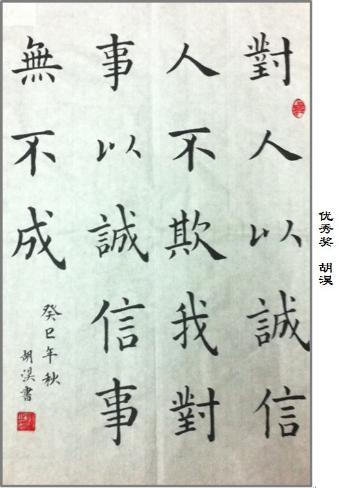 對人以誠信
人不欺我對
事以誠信事
無不成
癸巳年秋
胡淏書
优秀奖 胡淏